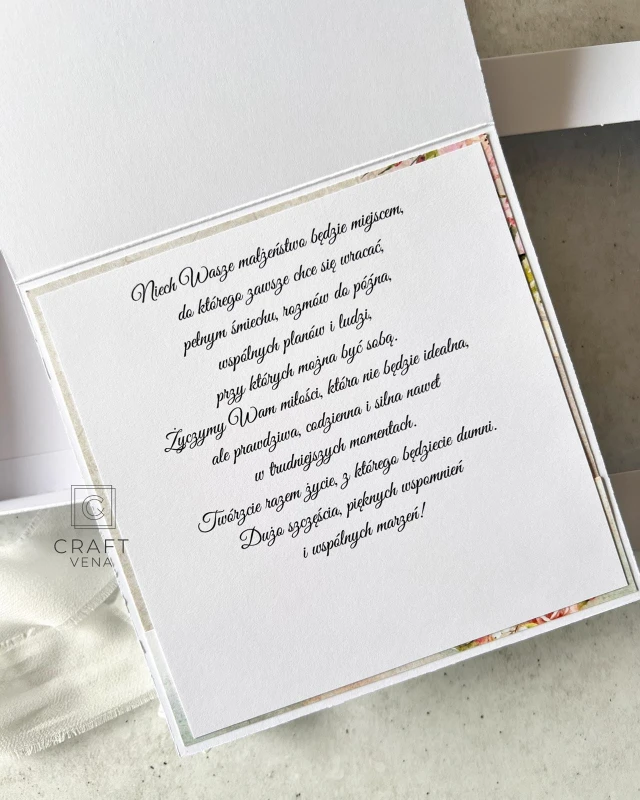 Niech Wasze małżeństwo będzie miejscem,
do którego zawsze chce się wracać,
pełnym śmiechu, rozmów do późna,
wspólnych planów i ludzi,
przy których można być sobą.
Życzymy Wam miłości, która nie będzie idealna,
ale prawdziwa, codzienna i silna nawet
w trudniejszych momentach.
Twórzcie razem życie, z którego będziecie dumni.
Dużo szczęścia, pięknych wspomnień
i wspólnych marzeń!
C
CRAFT
VENA